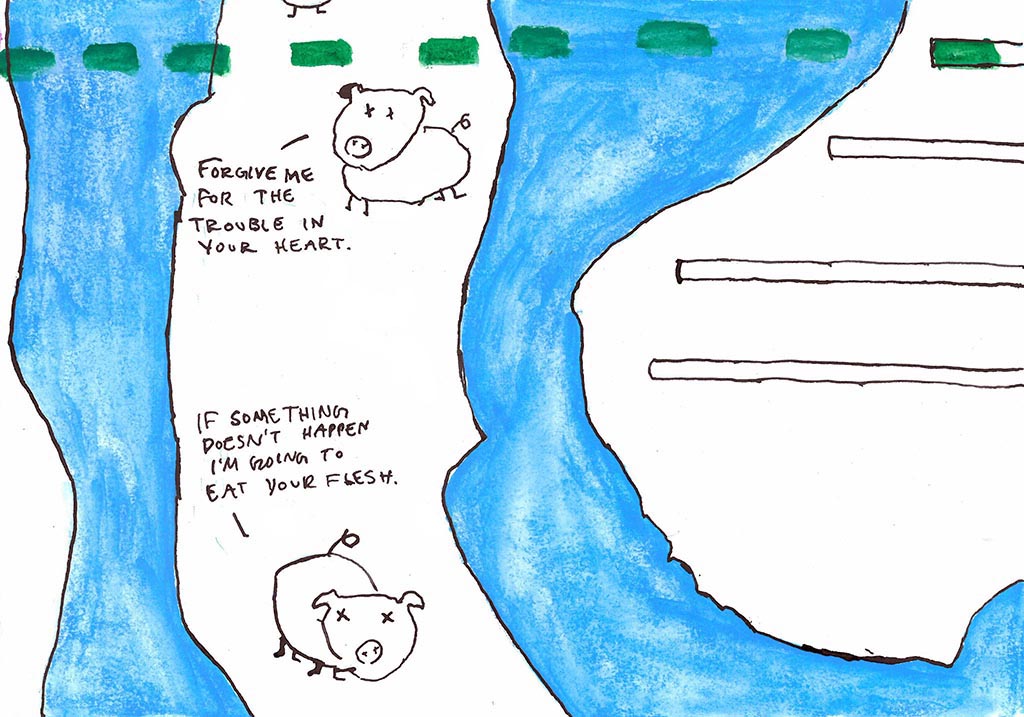 FORGIVE ME
FOR THE
TROUBLE IN
YOUR HEART.
IF SOMETHING
DOESN'T HAPPEN
I'M GOING TO
EAT YOUR FLESH.